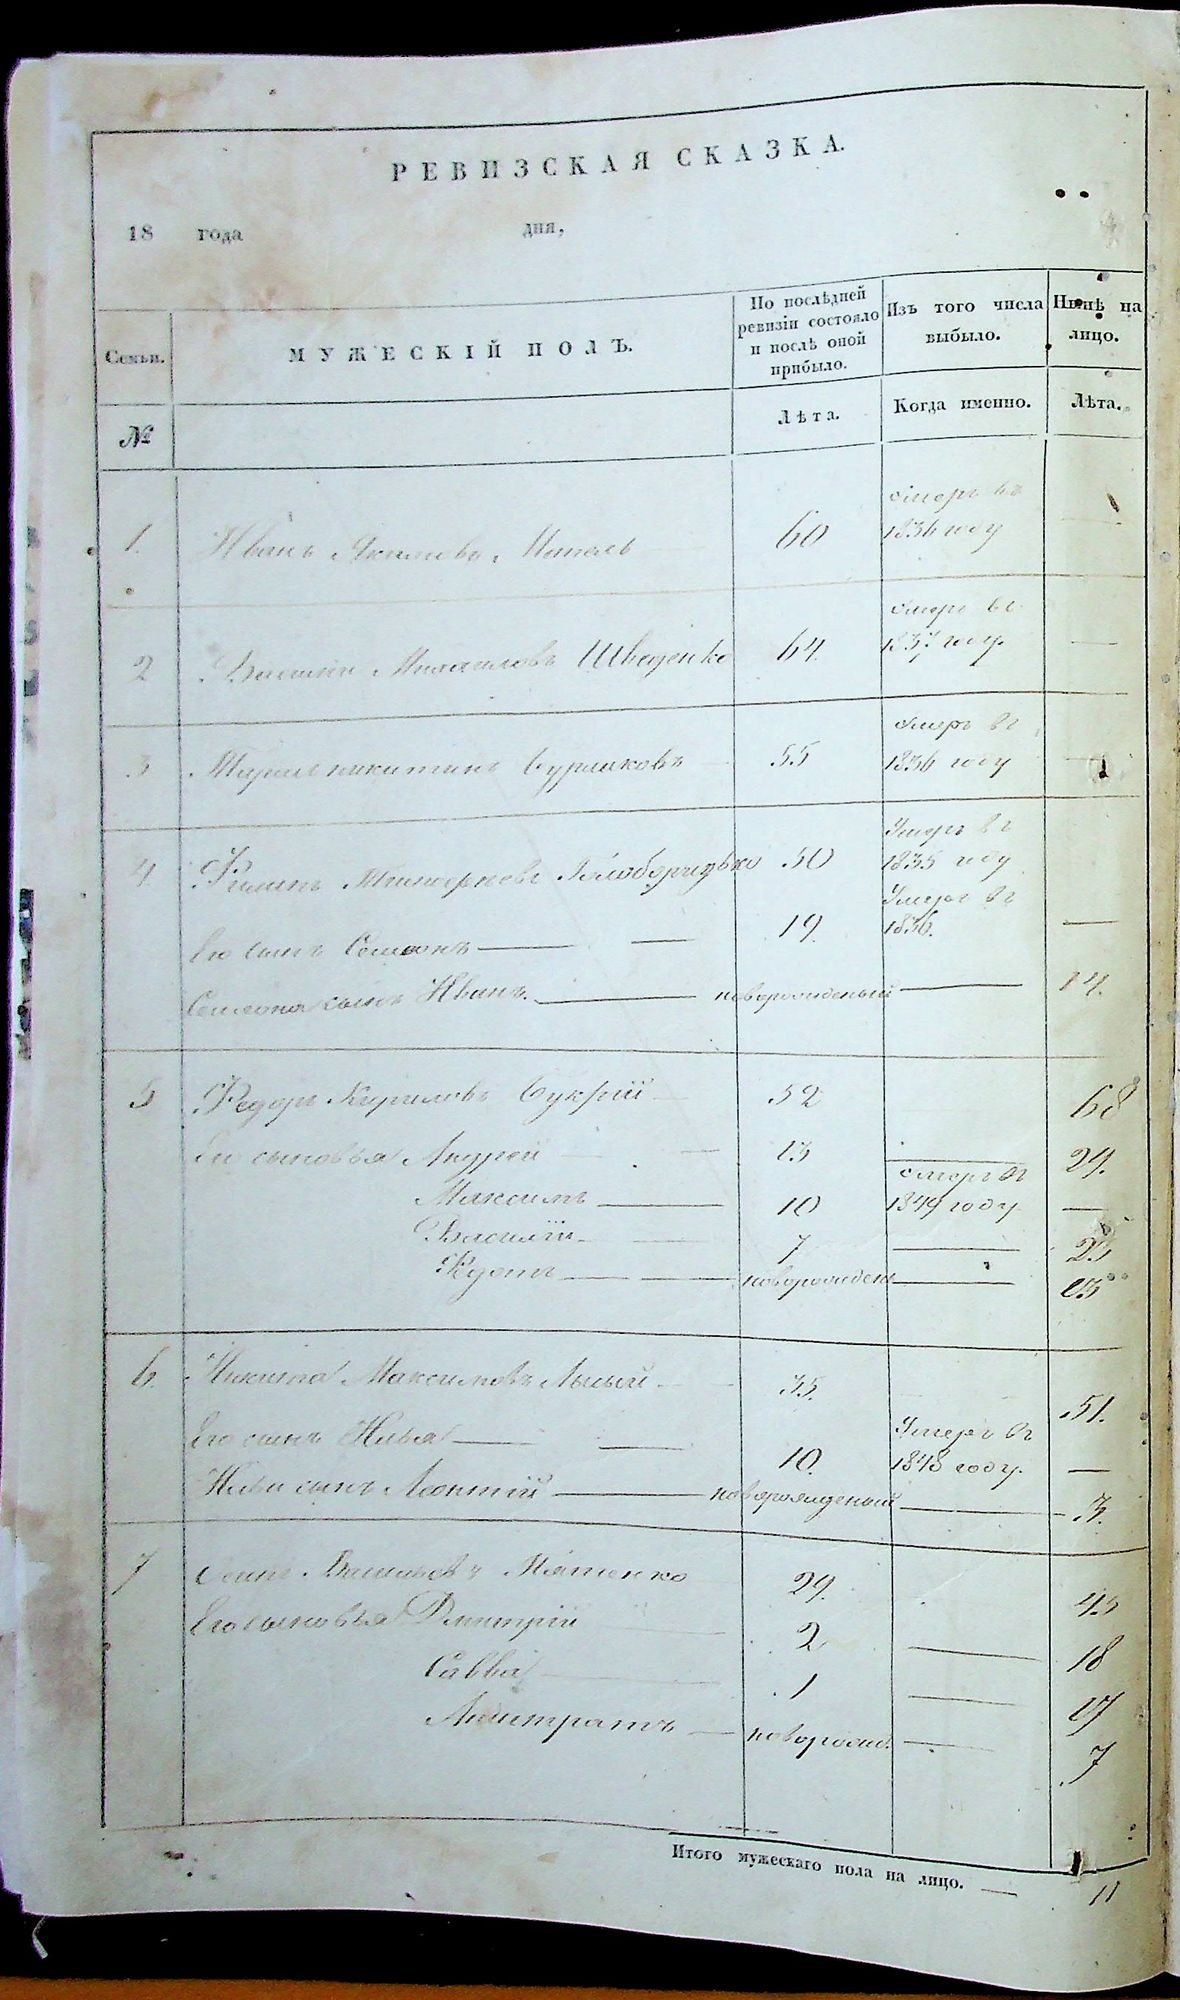 РЕВИЗСКАЯ СКАЗКА.
18 года дня,
Семьи. МУЖЕСКІЙ ПОЛЪ. По послѣдней ревизіи состояло и послѣ оной прибыло. Изъ того числа выбыло. Нынѣ на лицо.
№ Лѣта. Когда именно. Лѣта.
умеръ въ
1. Иванъ Якимовъ 60 1836 году —
умеръ въ
2 Василій Михайловъ Шведенко 64. 1837 году. —
умеръ въ
3 Никитинъ Бурлаковъ 55 1836 году —
Умеръ въ
4 Филипъ 50 1835 году
Умеръ въ
Его сынъ Семенъ — — 19. 1836. —
Семена сынъ Иванъ. — новорожденый — 14.
5 Федоръ Кириловъ Букрій 52 68
Его сыновья Андрей — 13 — 29.
умеръ въ
Максимъ — 10 1849 году —
Василій — 7 — 23
Федотъ — — новорожден — 13
6. Никита Максимовъ Лысый 35. 51.
Умеръ въ
Его сынъ Илья — — 10. 1848 году. —
Ильи сынъ Леонтій — новорожденый — 3.
7 Осипъ Васильевъ 29. 45
Его сыновья Дмитрій — 2 — 18
Савва — 1 — 17
— новорожд. — 7
Итого мужескаго пола на лицо. — 11